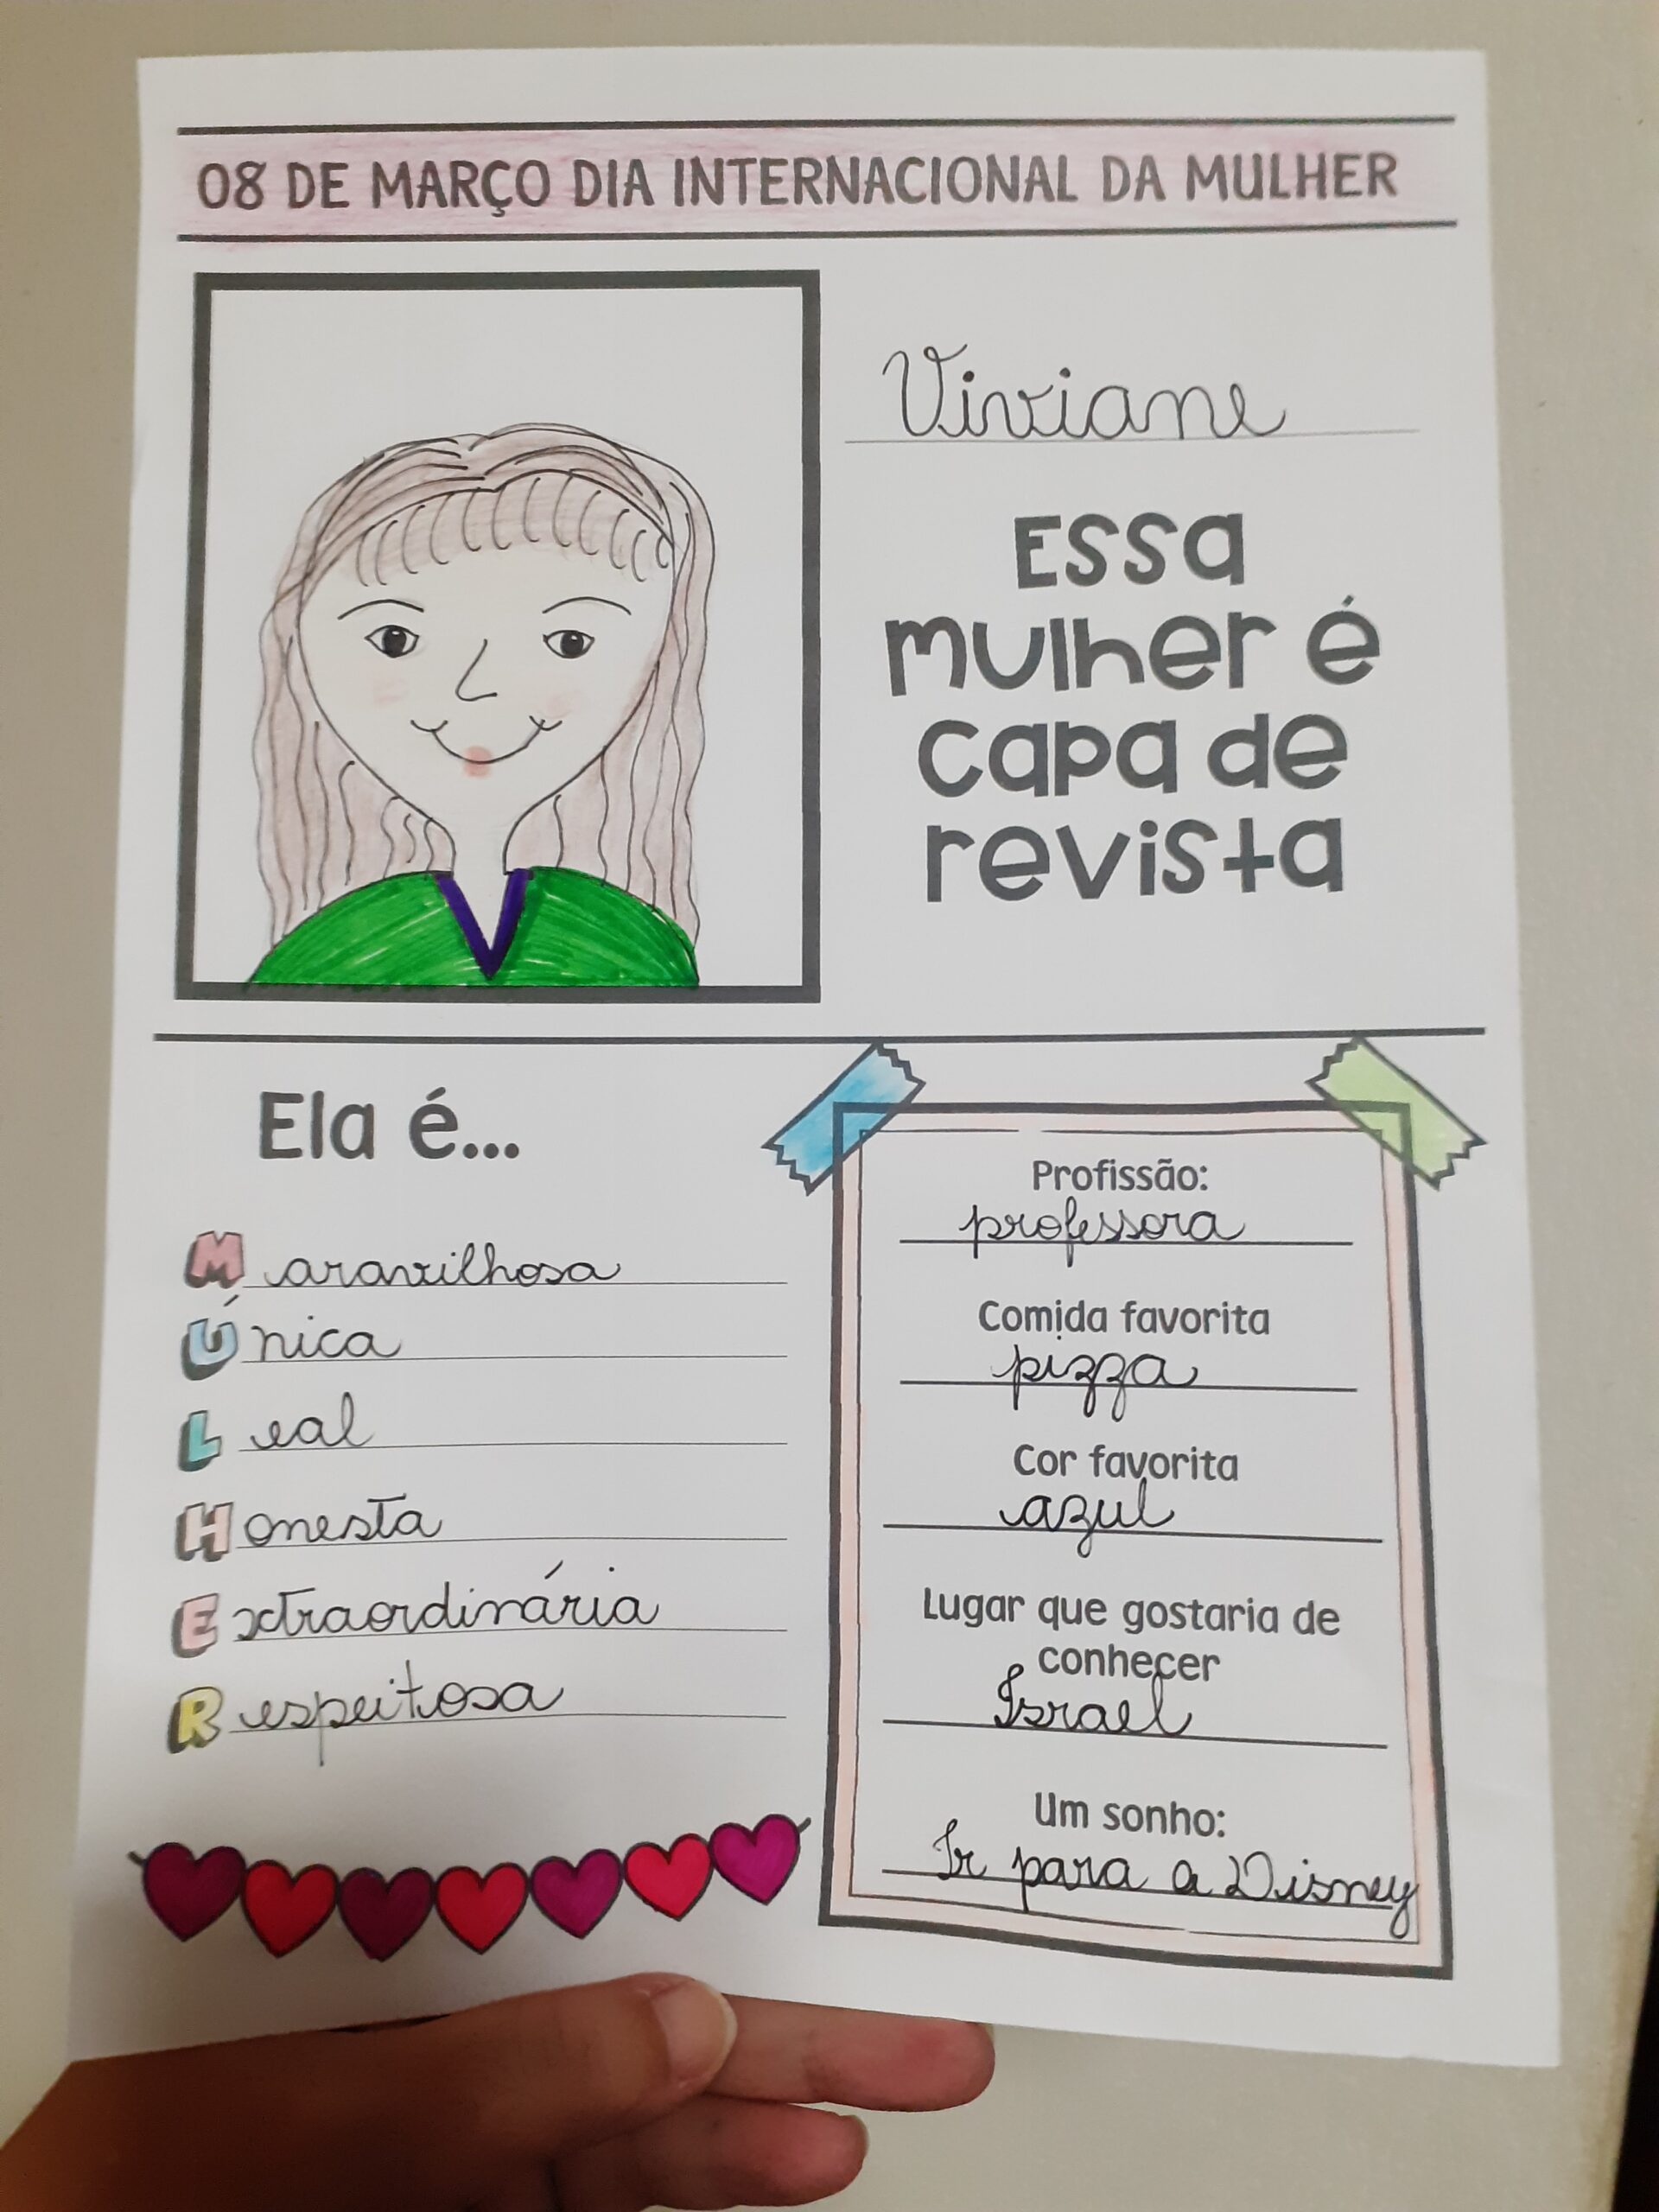 08 DE MARÇO DIA INTERNACIONAL DA MULHER
Viviane
Essa
mulher é
capa de
revista
Ela é...
Maravilhosa
Única
Leal
Honesta
Extraordinária
Respeitosa
Profissão:
professora
Comida favorita
pizza
Cor favorita
azul
Lugar que gostaria de
conhecer
Israel
Um sonho:
Ir para a Disney